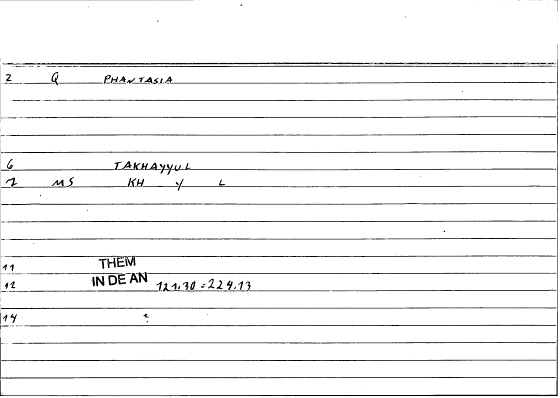 2 Q PHANTASIA
6 TAKHAYYUL
7 MS KH Y L
11 THEM
12 IN DE AN 121.30 = 224.13
14